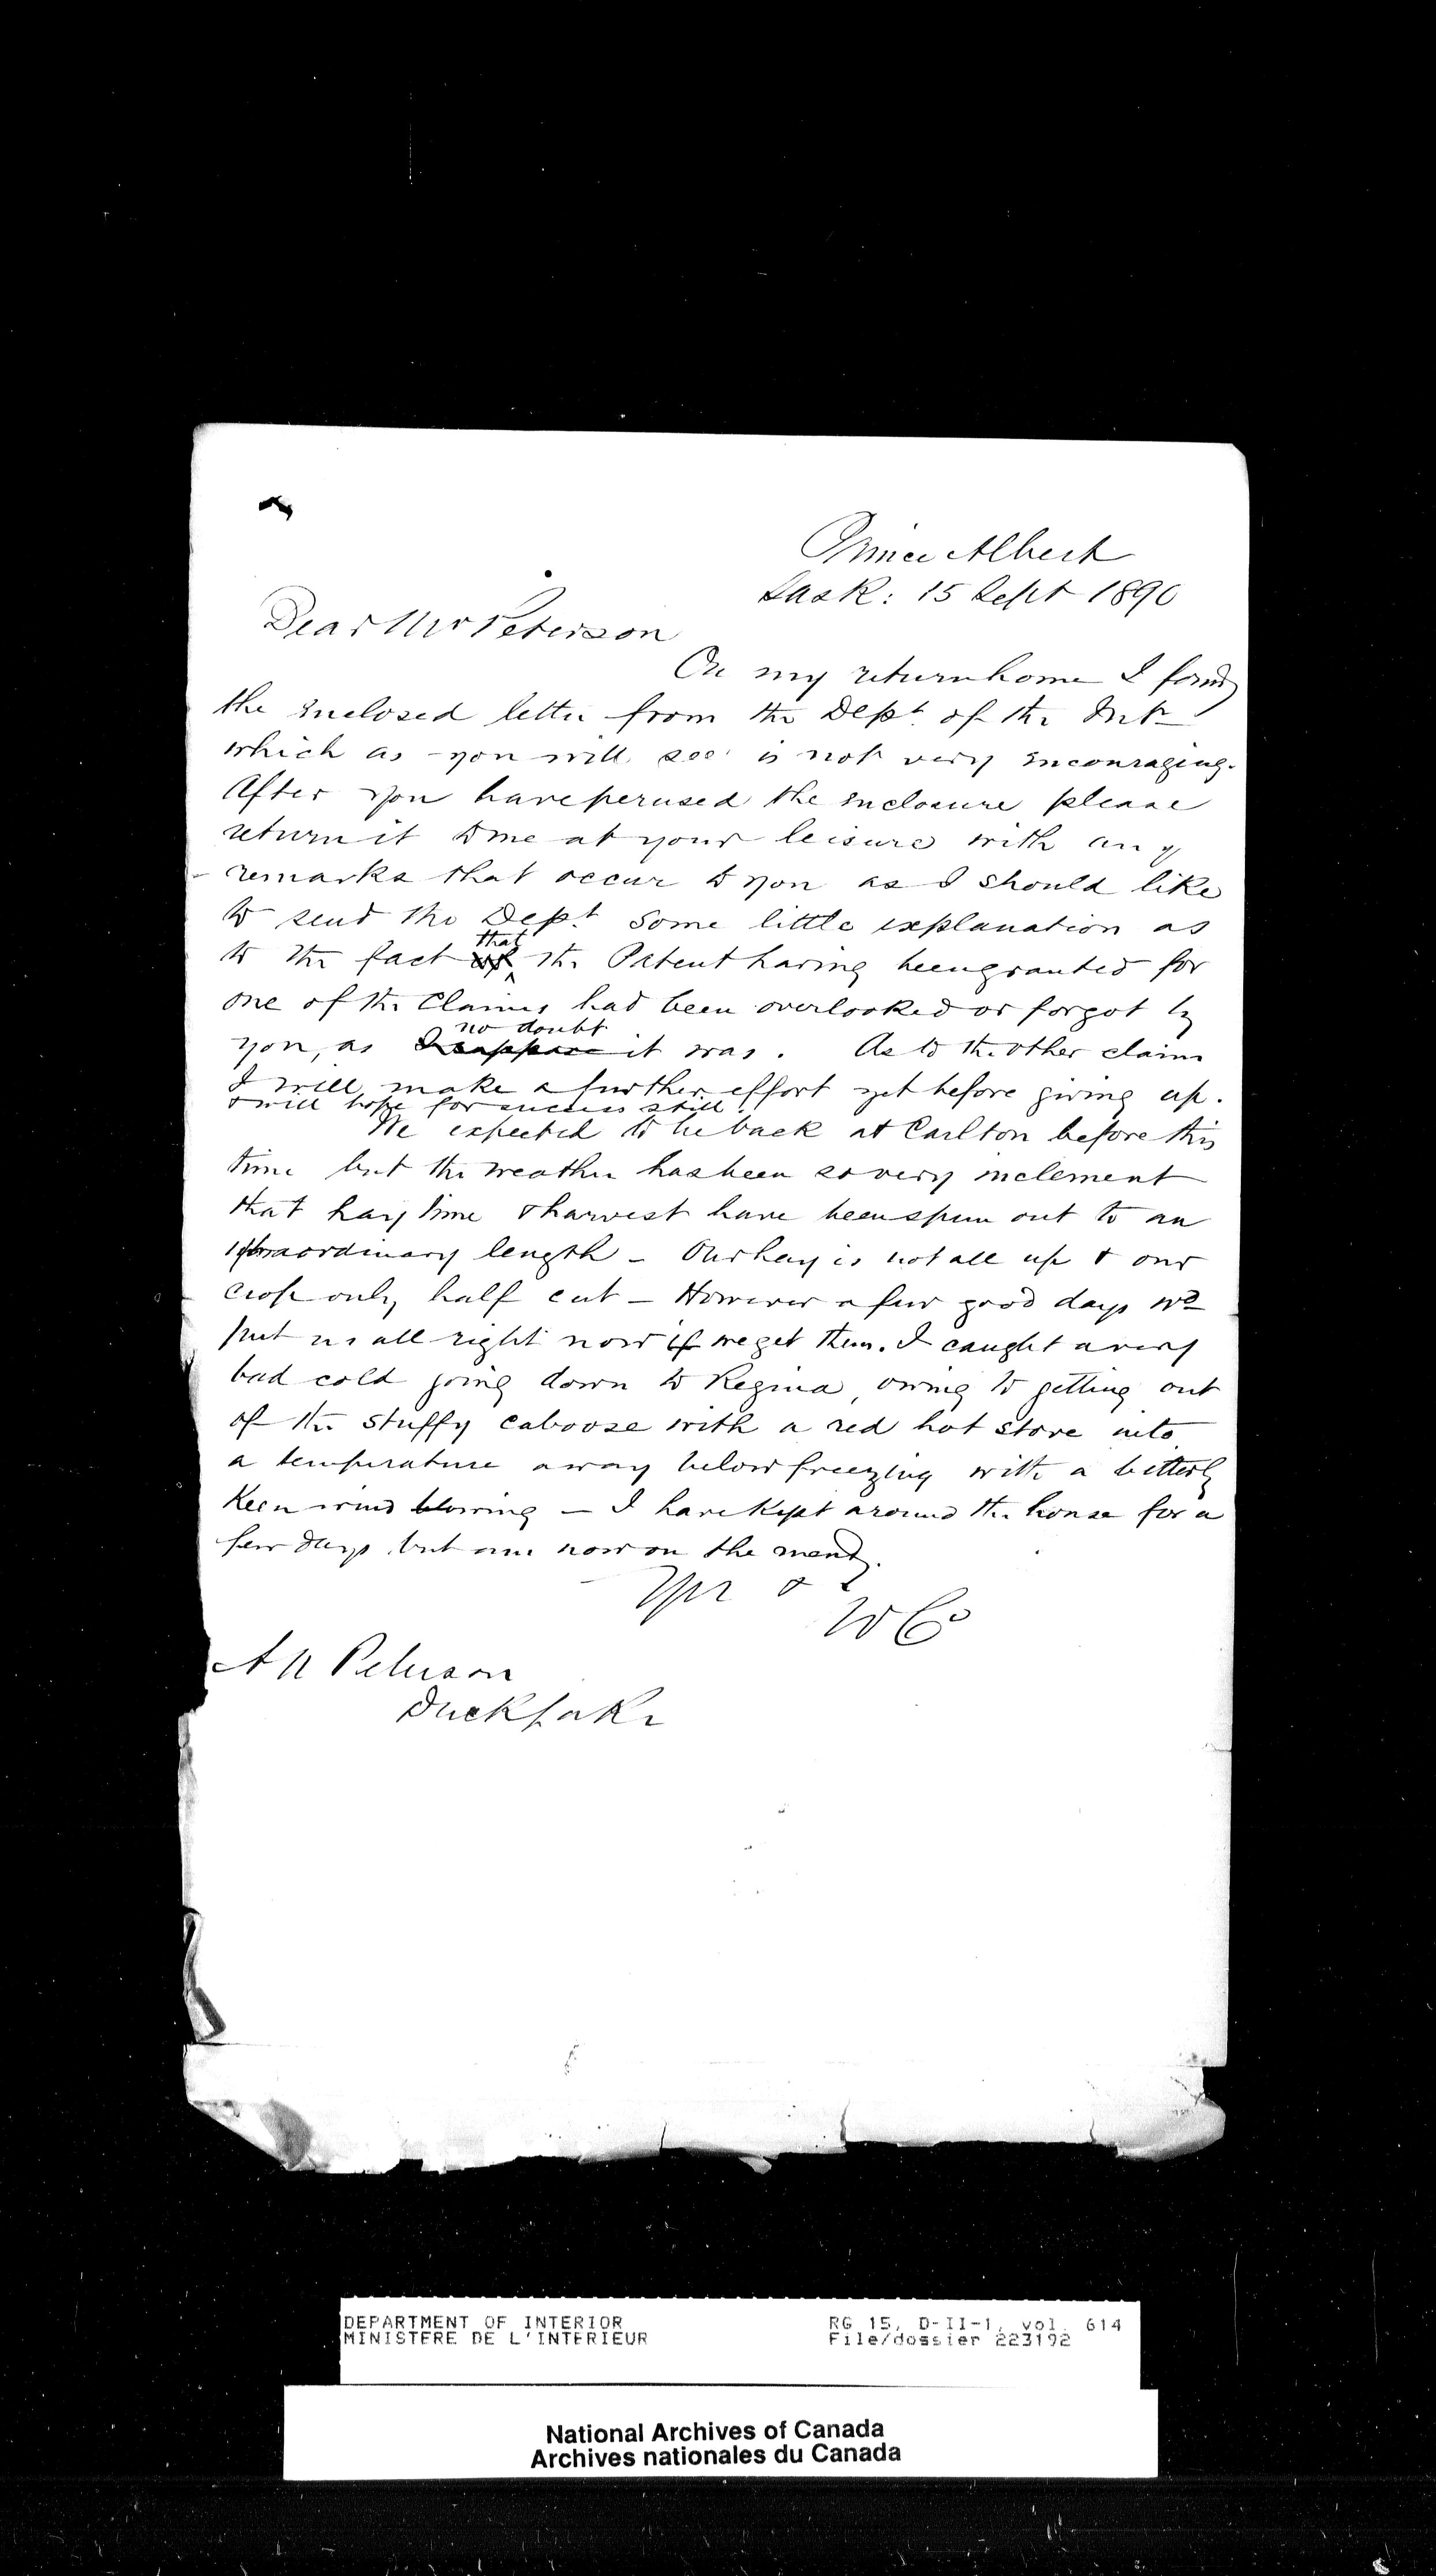 Prince Albert
Sask: 15 Sept 1890
Dear Mr Peterson
On my return home I found
the inclosed letter from the Dept. of the Intr
which as you will see is not very incouraging.
After you have perused the inclosure please
return it to me at your leisure with any
remarks that occur to you as I should like
to send the Dept. some little explanation as
that
to the fact of the Patent having been granted for
one of the Claims had been overlooked or forgot by
no doubt
you, as I suppose it was. As to the other claim
I will make a further effort yet before giving up.
& will hope for success still.
We expected to be back at Carlton before this
time but the weather has been so very inclement
that hay time & harvest have been spun out to an
extraordinary length - Our hay is not all up & our
crop only half cut - However a few good days wd
put us all right now if we get them. I caught a very
bad cold going down to Regina, owing to getting out
of the stuffy caboose with a red hot stove into
a temperature away below freezing with a bitterly
keen wind blowing - I have kept around the house for a
few days but am now on the mend.
Yrs &
W C
A N Peterson
Duck Lake
DEPARTMENT OF INTERIOR
MINISTERE DE L'INTERIEUR
RG 15, D-II-1, vol. 614
File/dossier 223192
National Archives of Canada
Archives nationales du Canada